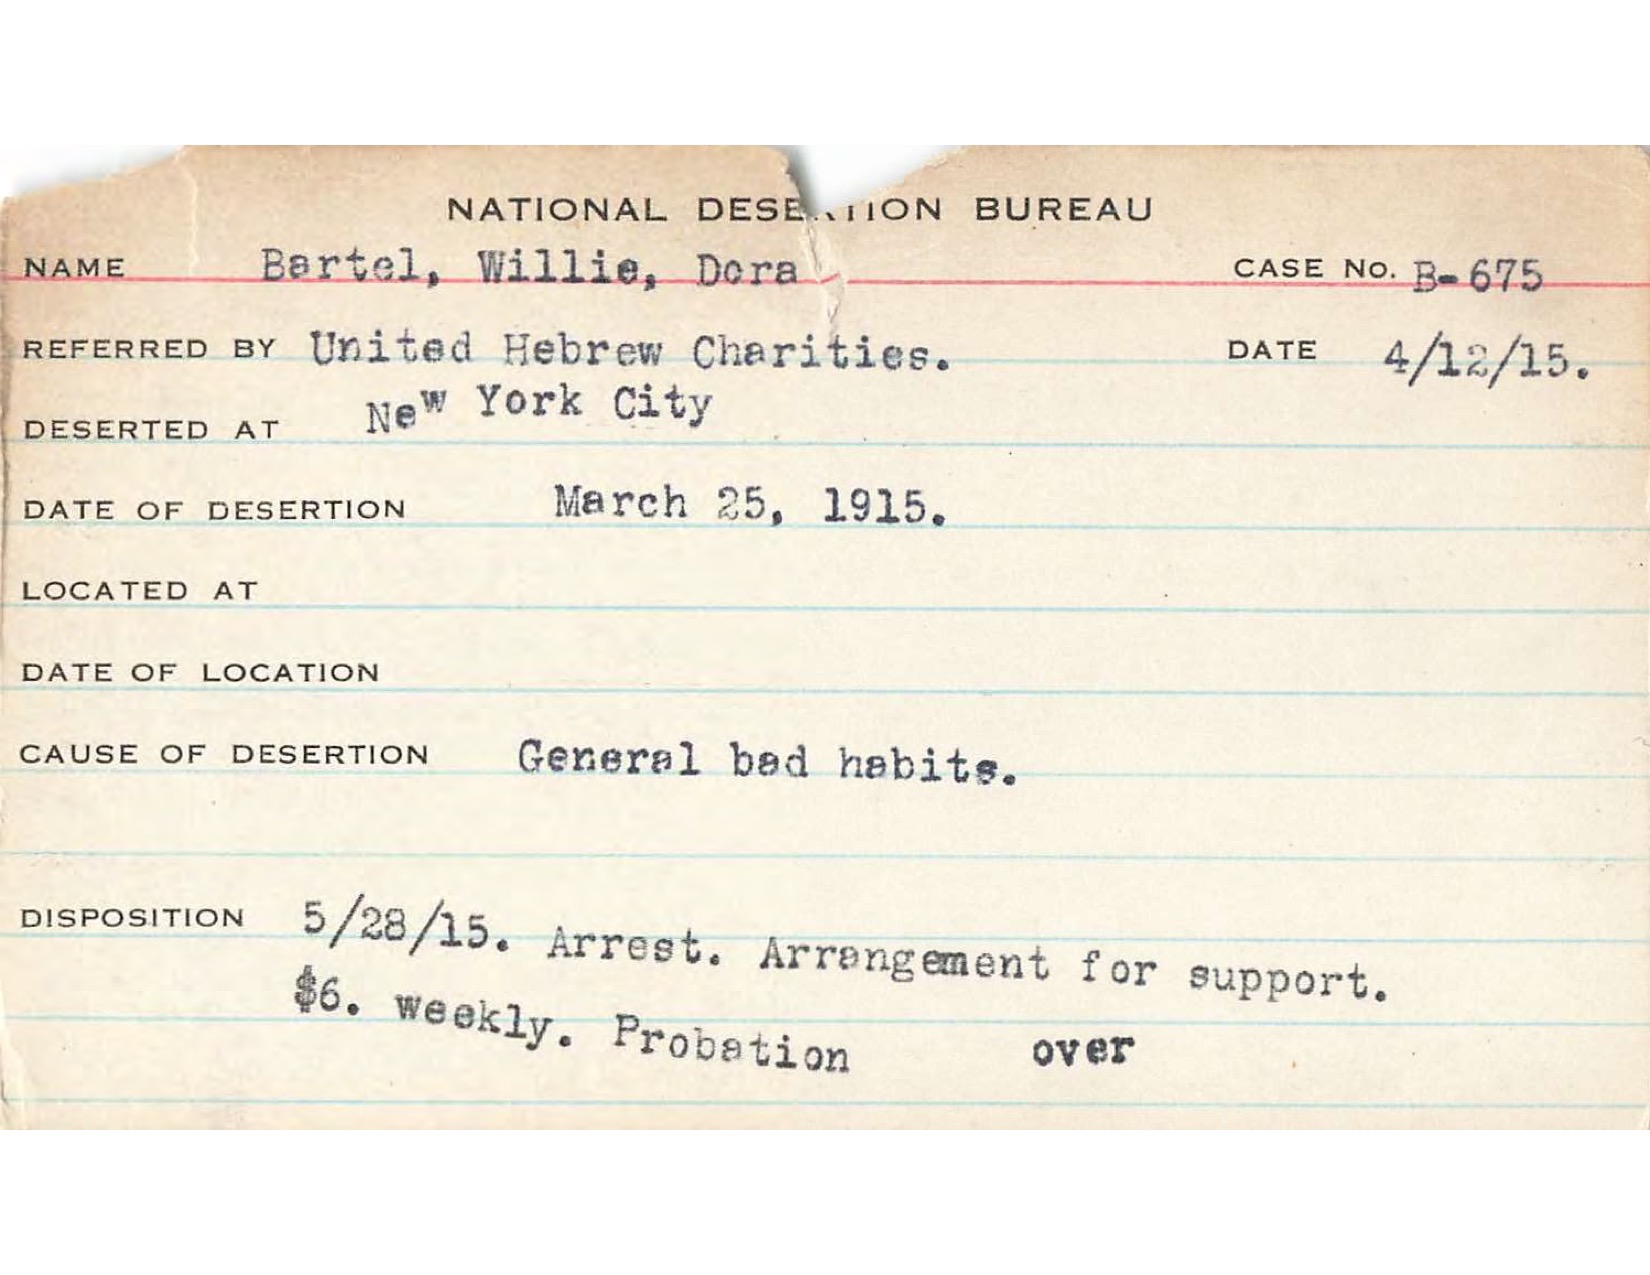 NATIONAL DESERTION BUREAU
NAME Bartel, Willie, Dora CASE No. B-675
REFERRED BY United Hebrew Charities. DATE 4/12/15.
DESERTED AT New York City
DATE OF DESERTION March 25, 1915.
LOCATED AT
DATE OF LOCATION
CAUSE OF DESERTION General bad habits.
DISPOSITION 5/28/15. Arrest. Arrangement for support.
$6. weekly. Probation over